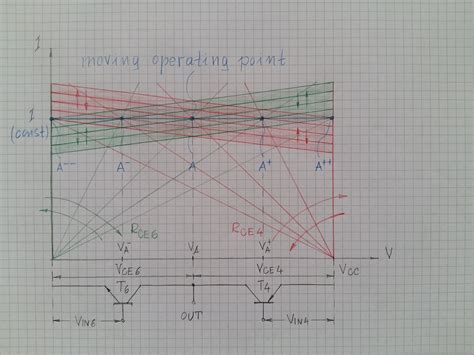 I
moving operating point
I
(const)
A-- A- A A+ A++
RCE6 RCE4
VA- VA VA+ V
VCE6 VCE4 VCC
T6 T4
VIN6 OUT VIN4